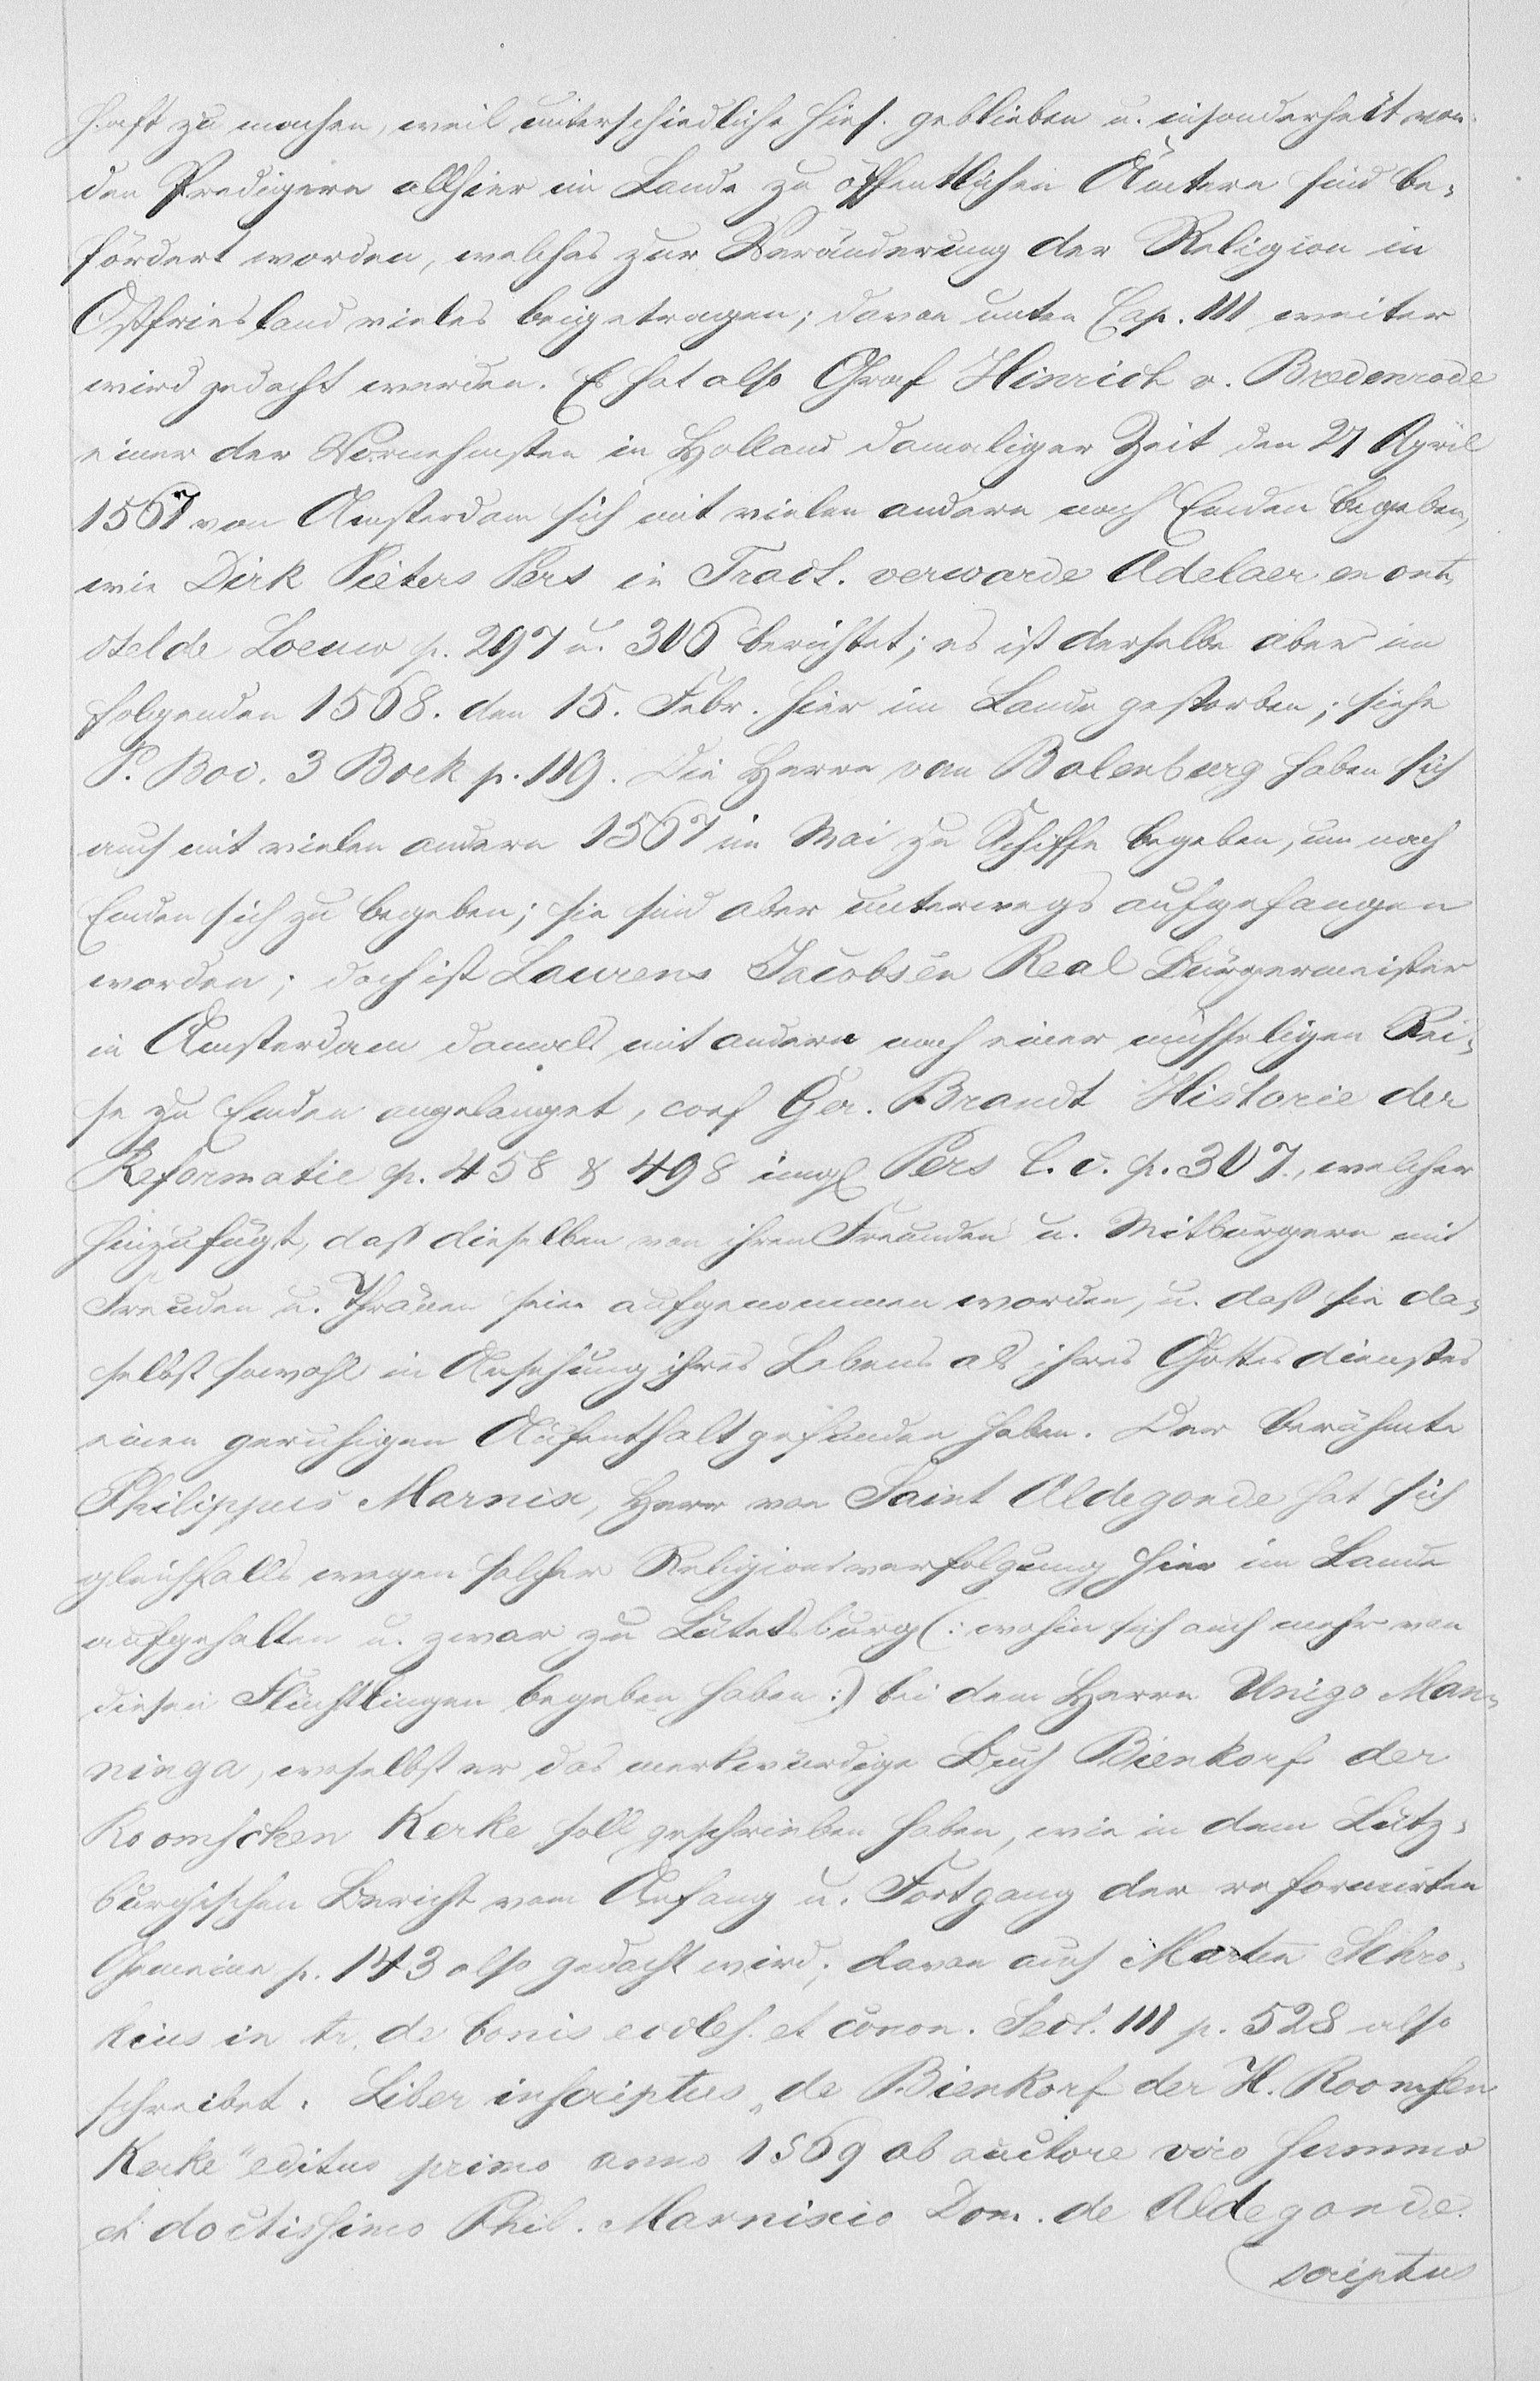 haft zu machen, weil unterschiedliche hies. geblieben u. insonderheit von
den Predigern allhier im Lande zu öffentlichen Ämtern sind be-
fördert worden, welches zur Veränderung der Religion in
Ostfriesland vieles beigetragen; davon unten Cap. III weiter
wird gedacht werden. Es hat also Graf Hinrich v. Bredenrode
einer der Vornehmsten in Holland damaliger Zeit den 27 April
1567 von Amsterdam sich mit vielen andern nach Emden begeben,
wie Dirk Pieters Pers in Tract. verwarde Adelaer en ont-
stelde Loeuw p. 297 u. 306 berichtet; es ist derselbe aber im
folgenden 1568. den 15. Febr. hier im Lande gestorben; siehe
P. Boc. 3 Boek p. 119. Die Herrn van Batenburg haben sich
auch mit vielen andern 1567 im Mai zu Schiffe begeben, um nach
Emden sich zu begeben; sie sind aber unterwegs aufgefangen
worden; doch ist Laurens Jacobsen Real Bürgermeister
in Amsterdam damals mit andern nach einer mühseligen Rei-
se zu Emden angelanget, conf Ger. Brandt Historie der
Reformatie p. 458 & 498 imgl Pers l. c. p. 307., welcher
hinzufügt, daß dieselben von ihren Freunden u. Mitbürgern mit
Freuden u. Thränen seien aufgenommen worden, u. daß sie da-
selbst sowohl in Ansehung ihres Lebens als ihres Gottesdienstes
einen geruhigen Aufenthalt gefunden haben. Der berühmte
Philippus Marnix, Herr von Saint Aldegonde hat sich
gleichfalls wegen solcher Religionsverfolgung hier im Lande
aufgehalten u. zwar zu Lütetsburg (: wohin sich auch mehr von
diesen Flüchtlingen begeben haben :) bei dem Herrn Unigo Man-
ninga, woselbst er das merkwürdige Buch Bienkorf der
Roomschen Kerke soll geschrieben haben, wie in dem Lütz-
burgischen Bericht vom Anfang u. Fortgang der reformirten
Gemeine p. 143 also gedacht wird; davon auch Marten Schro-
kius in tr. de bonis eccles. et canon. Sect. III p. 528 also
schreibet: Liber inscriptus „de Bienkorf der H. Roomschen
Kerke" editus primo anno 1569 ab auctore viro summo
et doctissimo Phil. Marnixio Dom. de Aldegonde.
scriptus